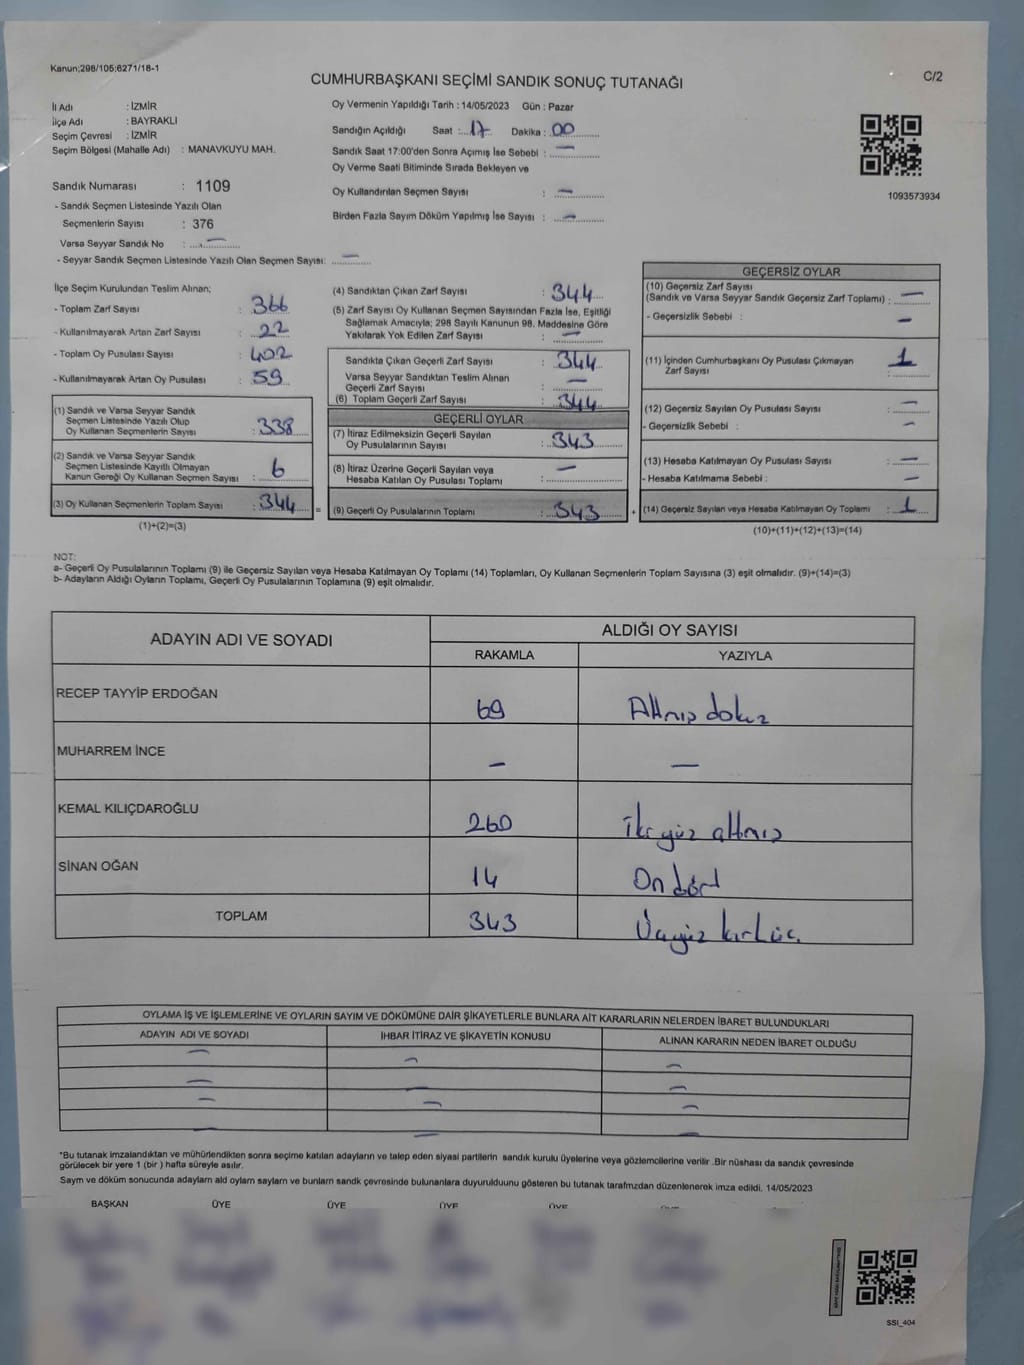 Kanun;298/105;6271/18-1
CUMHURBAŞKANI SEÇİMİ SANDIK SONUÇ TUTANAĞI
C/2
İl Adı : İZMİR
İlçe Adı : BAYRAKLI
Seçim Çevresi : İZMİR
Seçim Bölgesi (Mahalle Adı) : MANAVKUYU MAH.
Oy Vermenin Yapıldığı Tarih : 14/05/2023 Gün : Pazar
Sandığın Açıldığı Saat : 17 Dakika : 00
Sandık Saat 17:00'den Sonra Açımış İse Sebebi : —
Oy Verme Saati Bitiminde Sırada Bekleyen ve
Oy Kullandırılan Seçmen Sayısı : —
Birden Fazla Sayım Döküm Yapılmış İse Sayısı : —
1093573934
Sandık Numarası : 1109
- Sandık Seçmen Listesinde Yazılı Olan
Seçmenlerin Sayısı : 376
Varsa Seyyar Sandık No : —
- Seyyar Sandık Seçmen Listesinde Yazılı Olan Seçmen Sayısı: —
İlçe Seçim Kurulundan Teslim Alınan;
- Toplam Zarf Sayısı : 366
- Kullanılmayarak Artan Zarf Sayısı : 22
- Toplam Oy Pusulası Sayısı : 402
- Kullanılmayarak Artan Oy Pusulası : 59
(1) Sandık ve Varsa Seyyar Sandık
Seçmen Listesinde Yazılı Olup
Oy Kullanan Seçmenlerin Sayısı : 338
(2) Sandık ve Varsa Seyyar Sandık
Seçmen Listesinde Kayıtlı Olmayan
Kanun Gereği Oy Kullanan Seçmen Sayısı : 6
(3) Oy Kullanan Seçmenlerin Toplam Sayısı : 344 =
(1)+(2)=(3)
(4) Sandıktan Çıkan Zarf Sayısı : 344
(5) Zarf Sayısı Oy Kullanan Seçmen Sayısından Fazla İse, Eşitliği
Sağlamak Amacıyla; 298 Sayılı Kanunun 98. Maddesine Göre
Yakılarak Yok Edilen Zarf Sayısı : —
Sandıkta Çıkan Geçerli Zarf Sayısı : 344
Varsa Seyyar Sandıktan Teslim Alınan
Geçerli Zarf Sayısı : —
(6) Toplam Geçerli Zarf Sayısı : 344
GEÇERLİ OYLAR
(7) İtiraz Edilmeksizin Geçerli Sayılan
Oy Pusulalarının Sayısı : 343
(8) İtiraz Üzerine Geçerli Sayılan veya
Hesaba Katılan Oy Pusulası Toplamı : —
(9) Geçerli Oy Pusulalarının Toplamı : 343 +
GEÇERSİZ OYLAR
(10) Geçersiz Zarf Sayısı
(Sandık ve Varsa Seyyar Sandık Geçersiz Zarf Toplamı) : —
- Geçersizlik Sebebi : —
(11) İçinden Cumhurbaşkanı Oy Pusulası Çıkmayan
Zarf Sayısı : 1
(12) Geçersiz Sayılan Oy Pusulası Sayısı : —
- Geçersizlik Sebebi : —
(13) Hesaba Katılmayan Oy Pusulası Sayısı : —
- Hesaba Katılmama Sebebi : —
(14) Geçersiz Sayılan veya Hesaba Katılmayan Oy Toplamı : 1
(10)+(11)+(12)+(13)=(14)
NOT:
a- Geçerli Oy Pusulalarının Toplamı (9) ile Geçersiz Sayılan veya Hesaba Katılmayan Oy Toplamı (14) Toplamları, Oy Kullanan Seçmenlerin Toplam Sayısına (3) eşit olmalıdır. (9)+(14)=(3)
b- Adayların Aldığı Oyların Toplamı, Geçerli Oy Pusulalarının Toplamına (9) eşit olmalıdır.
ADAYIN ADI VE SOYADI
ALDIĞI OY SAYISI
RAKAMLA YAZIYLA
RECEP TAYYİP ERDOĞAN 69 Altmış dokuz
MUHARREM İNCE — —
KEMAL KILIÇDAROĞLU 260 İki yüz altmış
SİNAN OĞAN 14 On dört
TOPLAM 343 Üçyüz kırküç.
OYLAMA İŞ VE İŞLEMLERİNE VE OYLARIN SAYIM VE DÖKÜMÜNE DAİR ŞİKAYETLERLE BUNLARA AİT KARARLARIN NELERDEN İBARET BULUNDUKLARI
ADAYIN ADI VE SOYADI İHBAR İTİRAZ VE ŞİKAYETİN KONUSU ALINAN KARARIN NEDEN İBARET OLDUĞU
— — —
— — —
— — —
— — —
*Bu tutanak imzalandıktan ve mühürlendikten sonra seçime katılan adayların ve talep eden siyasi partilerin sandık kurulu üyelerine veya gözlemcilerine verilir .Bir nüshası da sandık çevresinde
görülecek bir yere 1 (bir ) hafta süreyle asılır.
Sayım ve döküm sonucunda adayların ald oyların sayların ve bunların sandk çevresinde bulunanlara duyurulduunu gösteren bu tutanak tarafmzdan düzenlenerek imza edildi. 14/05/2023
BAŞKAN ÜYE ÜYE ÜYE ÜYE ÜYE
SSI_404